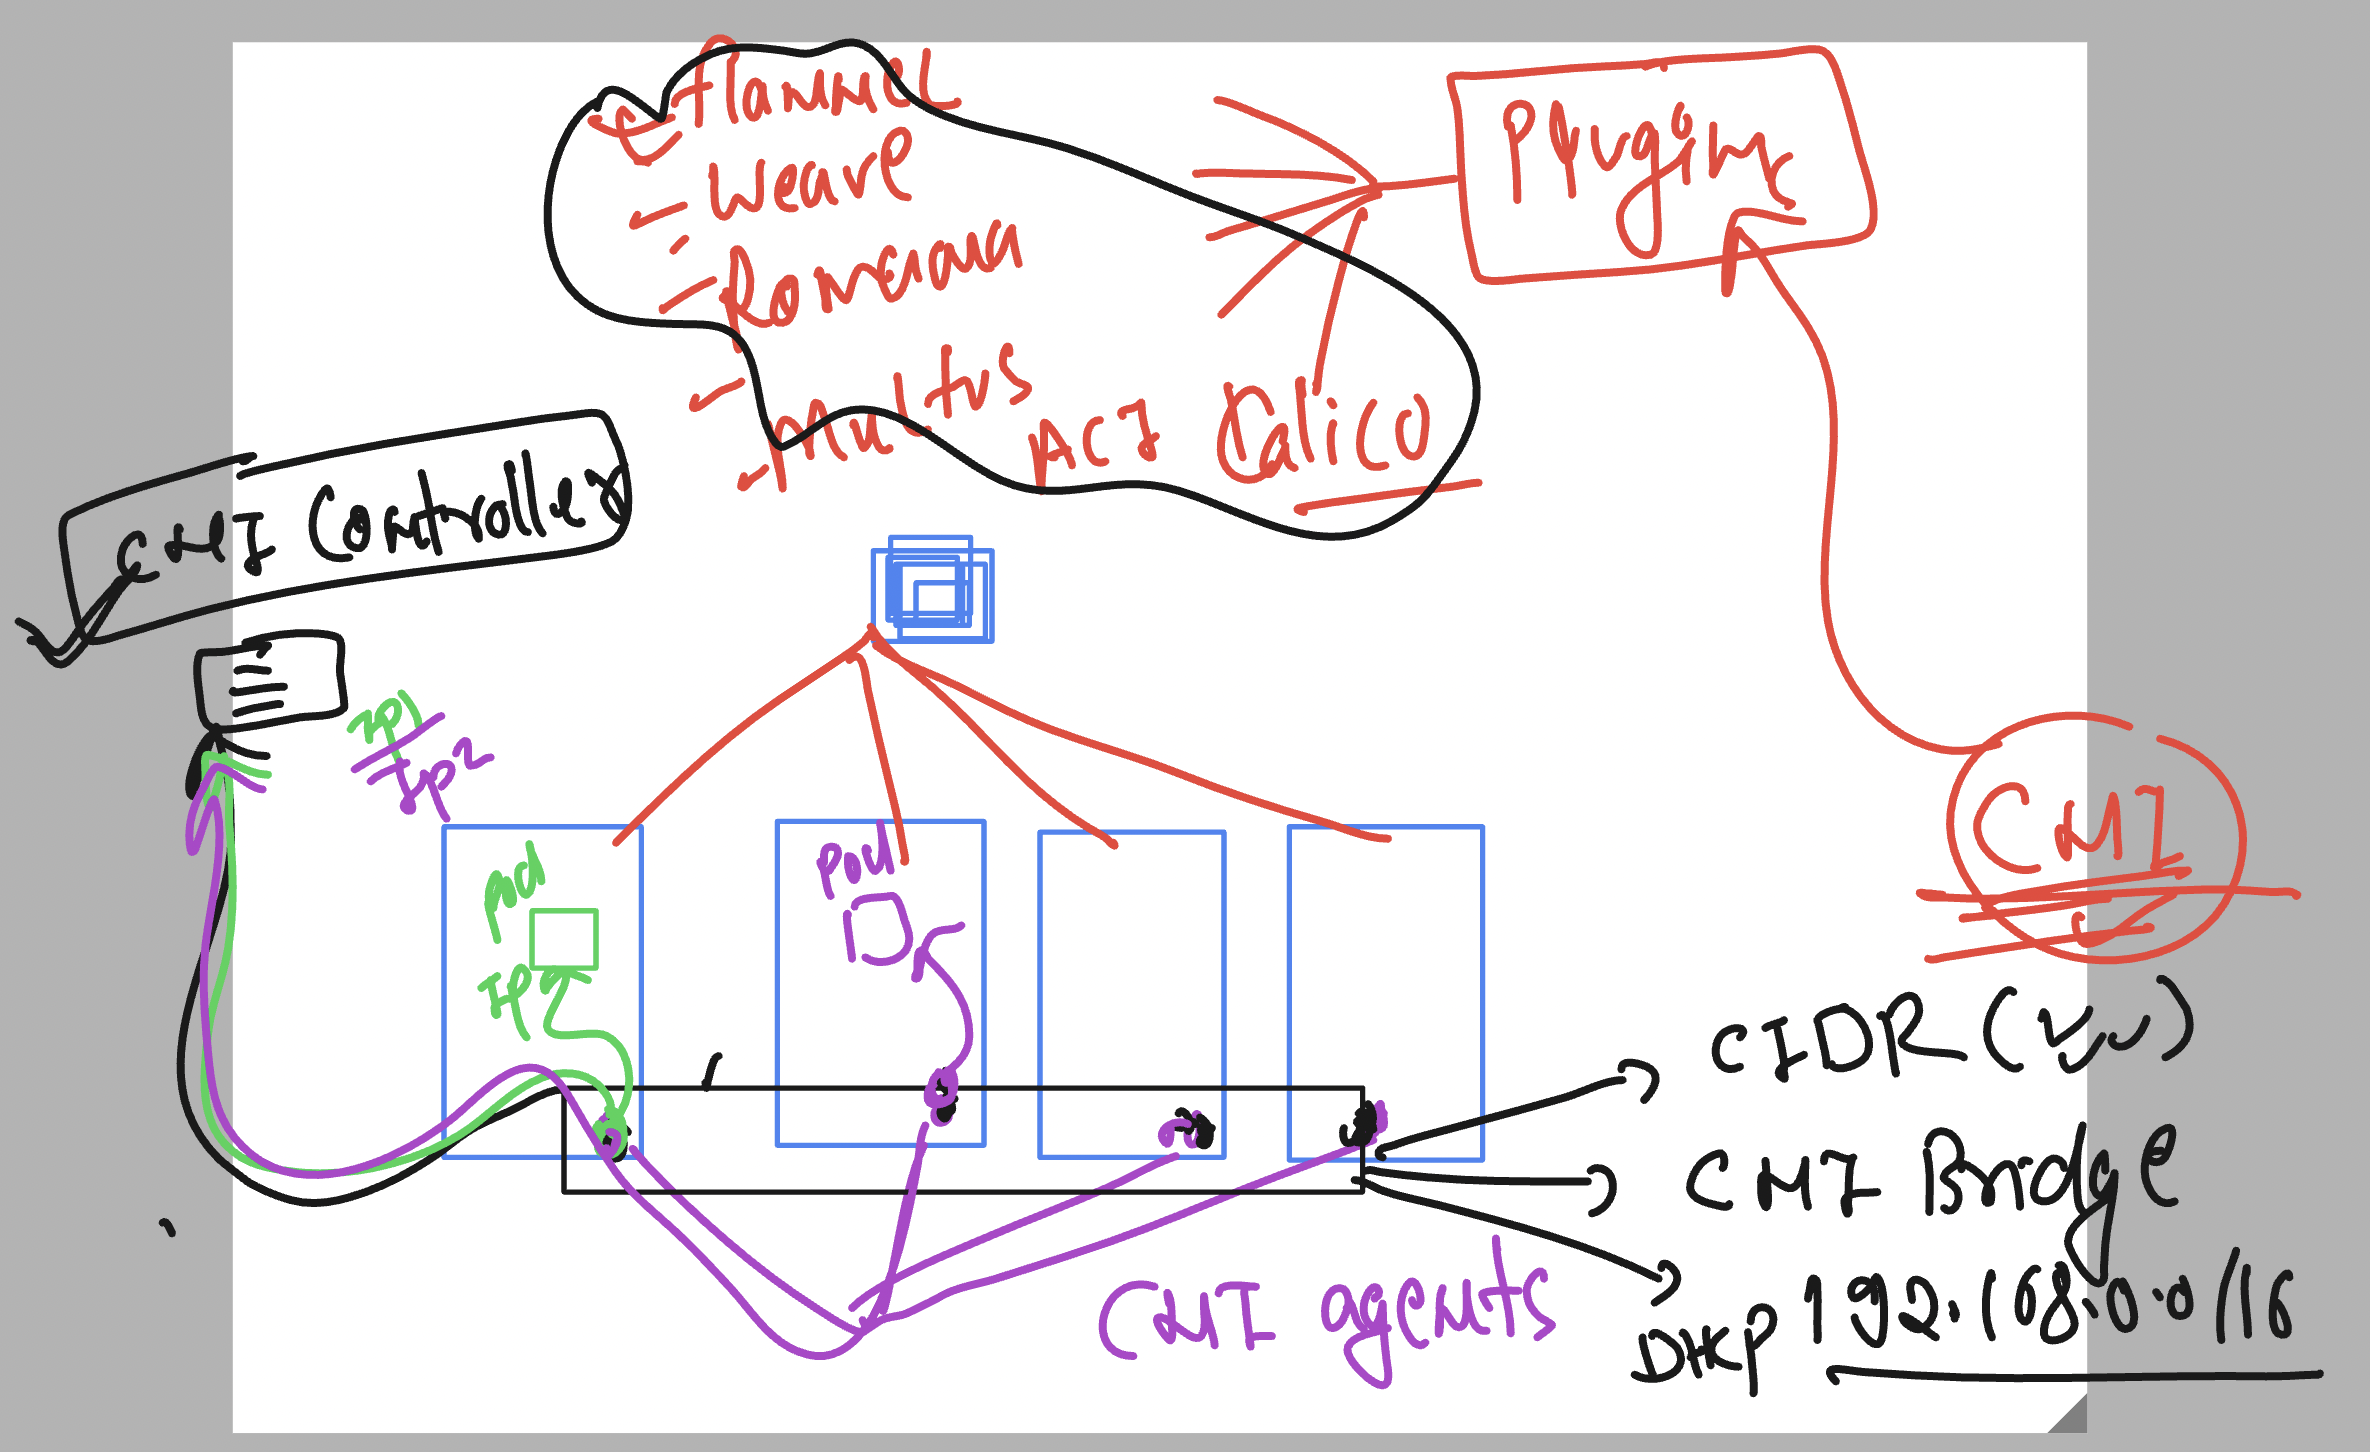 Flannel
- Weave
- Romana
- Multus
ACI Calico
Plugins
CNI Controller
IP1
IP2
Pod
IP
Pod
CNI
CIDR
CNI Bridge
DHCP 192.168.0.0/16
CNI agents